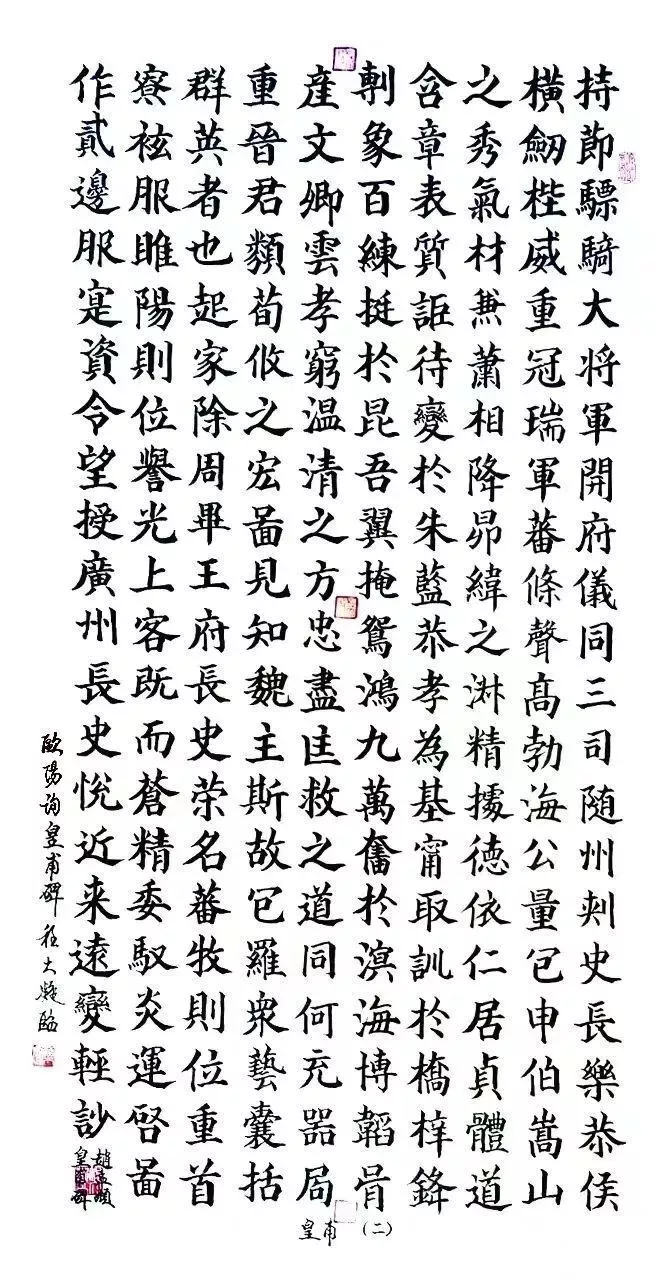 持節驃騎大将軍開府儀同三司随州刾史長樂恭侯
橫劒梐威重冠瑞軍蕃條聲髙勃海公量包申伯嵩山
之秀氣材兼蕭相降昴緯之淋精據德依仁居貞體道
含章表質詎待變於朱藍恭孝為基甯取訓於橋梓鋒
剸象百練挺於昆吾翼掩鴛鴻九萬奮於溟海博韜骨
産文卿雲孝窮温清之方忠盡匡救之道同何充器局
重晉君類荀攸之宏啚見知魏主斯故包羅衆藝囊括
群英者也起家除周畢王府長史荣名蕃牧則位重首
寮袨服睢陽則位譽光上客既而蒼精委馭炎運啓啚
作貳邊服寔資令望授廣州長史悅近来遠變輕訬
歐陽詢皇甫碑程大凝臨
趙孟頫
皇甫碑
皇甫（二）